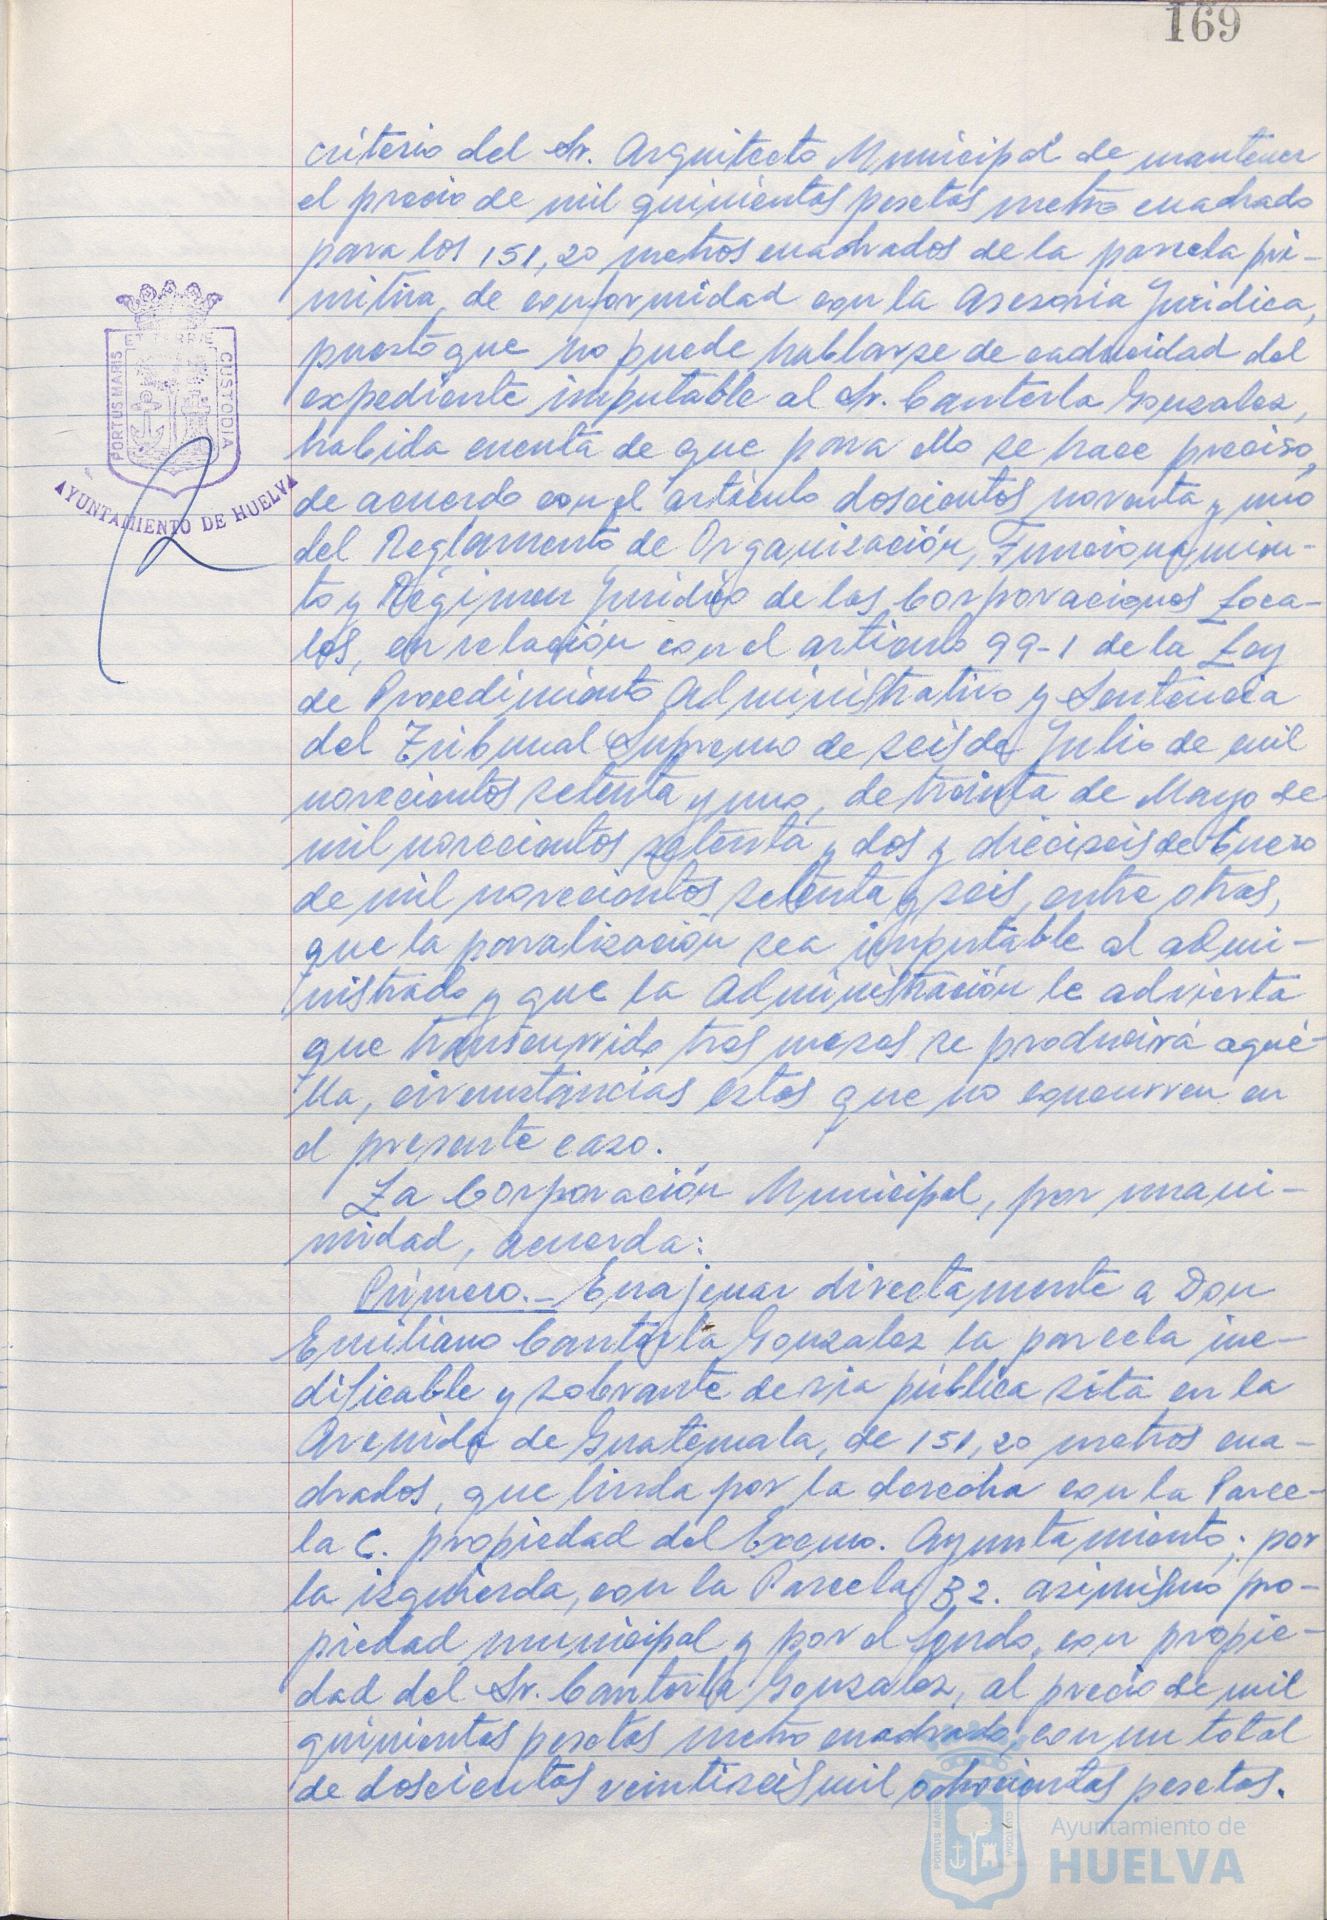 169
criterio del Sr. Arquitecto Municipal de mantener
el precio de mil quinientas pesetas metro cuadrado
para los 151,20 metros cuadrados de la parcela pri-
mitiva, de conformidad con la Asesoria Juridica,
puesto que no puede hablarse de caducidad del
expediente imputable al Sr. Canterla Gonzalez,
habida cuenta de que para ello se hace preciso,
de acuerdo con el articulo doscientos noventa y uno
del Reglamento de Organización, Funcionamien-
to y Régimen Jurídico de las Corporaciones Loca-
les, en relación con el articulo 99-1 de la Ley
de Procedimiento Administrativo y Sentencia
del Tribunal Supremo de seis de Julio de mil
novecientos setenta y uno, de treinta de Mayo de
mil novecientos setenta y dos y dieciseis de Enero
de mil novecientos setenta y seis, entre otras,
que la paralización sea imputable al admi-
nistrado y que la Administración le advierta
que transcurrido tres meses se producirá aqué-
lla, circunstancias estas que no concurren en
el presente caso.
La Corporación Municipal, por unani-
midad, acuerda:
Primero.- Enajenar directamente a Don
Emiliano Canterla Gonzalez la parcela ine-
dificable y sobrante de via pública sita en la
Avenida de Guatemala, de 151,20 metros cua-
drados, que linda por la derecha con la Parce-
la C. propiedad del Excmo. Ayuntamiento; por
la izquierda, con la Parcela B2. asimismo pro-
piedad municipal y por el fondo, con propie-
dad del Sr. Canterla Gonzalez, al precio de mil
quinientas pesetas metro cuadrado, con un total
de doscientas veintiseis mil ochocientas pesetas.
PORTUS MARIS
CUSTODIA
AYUNTAMIENTO DE HUELVA
PORTUS MARIS
CUSTODIA
Ayuntamiento de
HUELVA